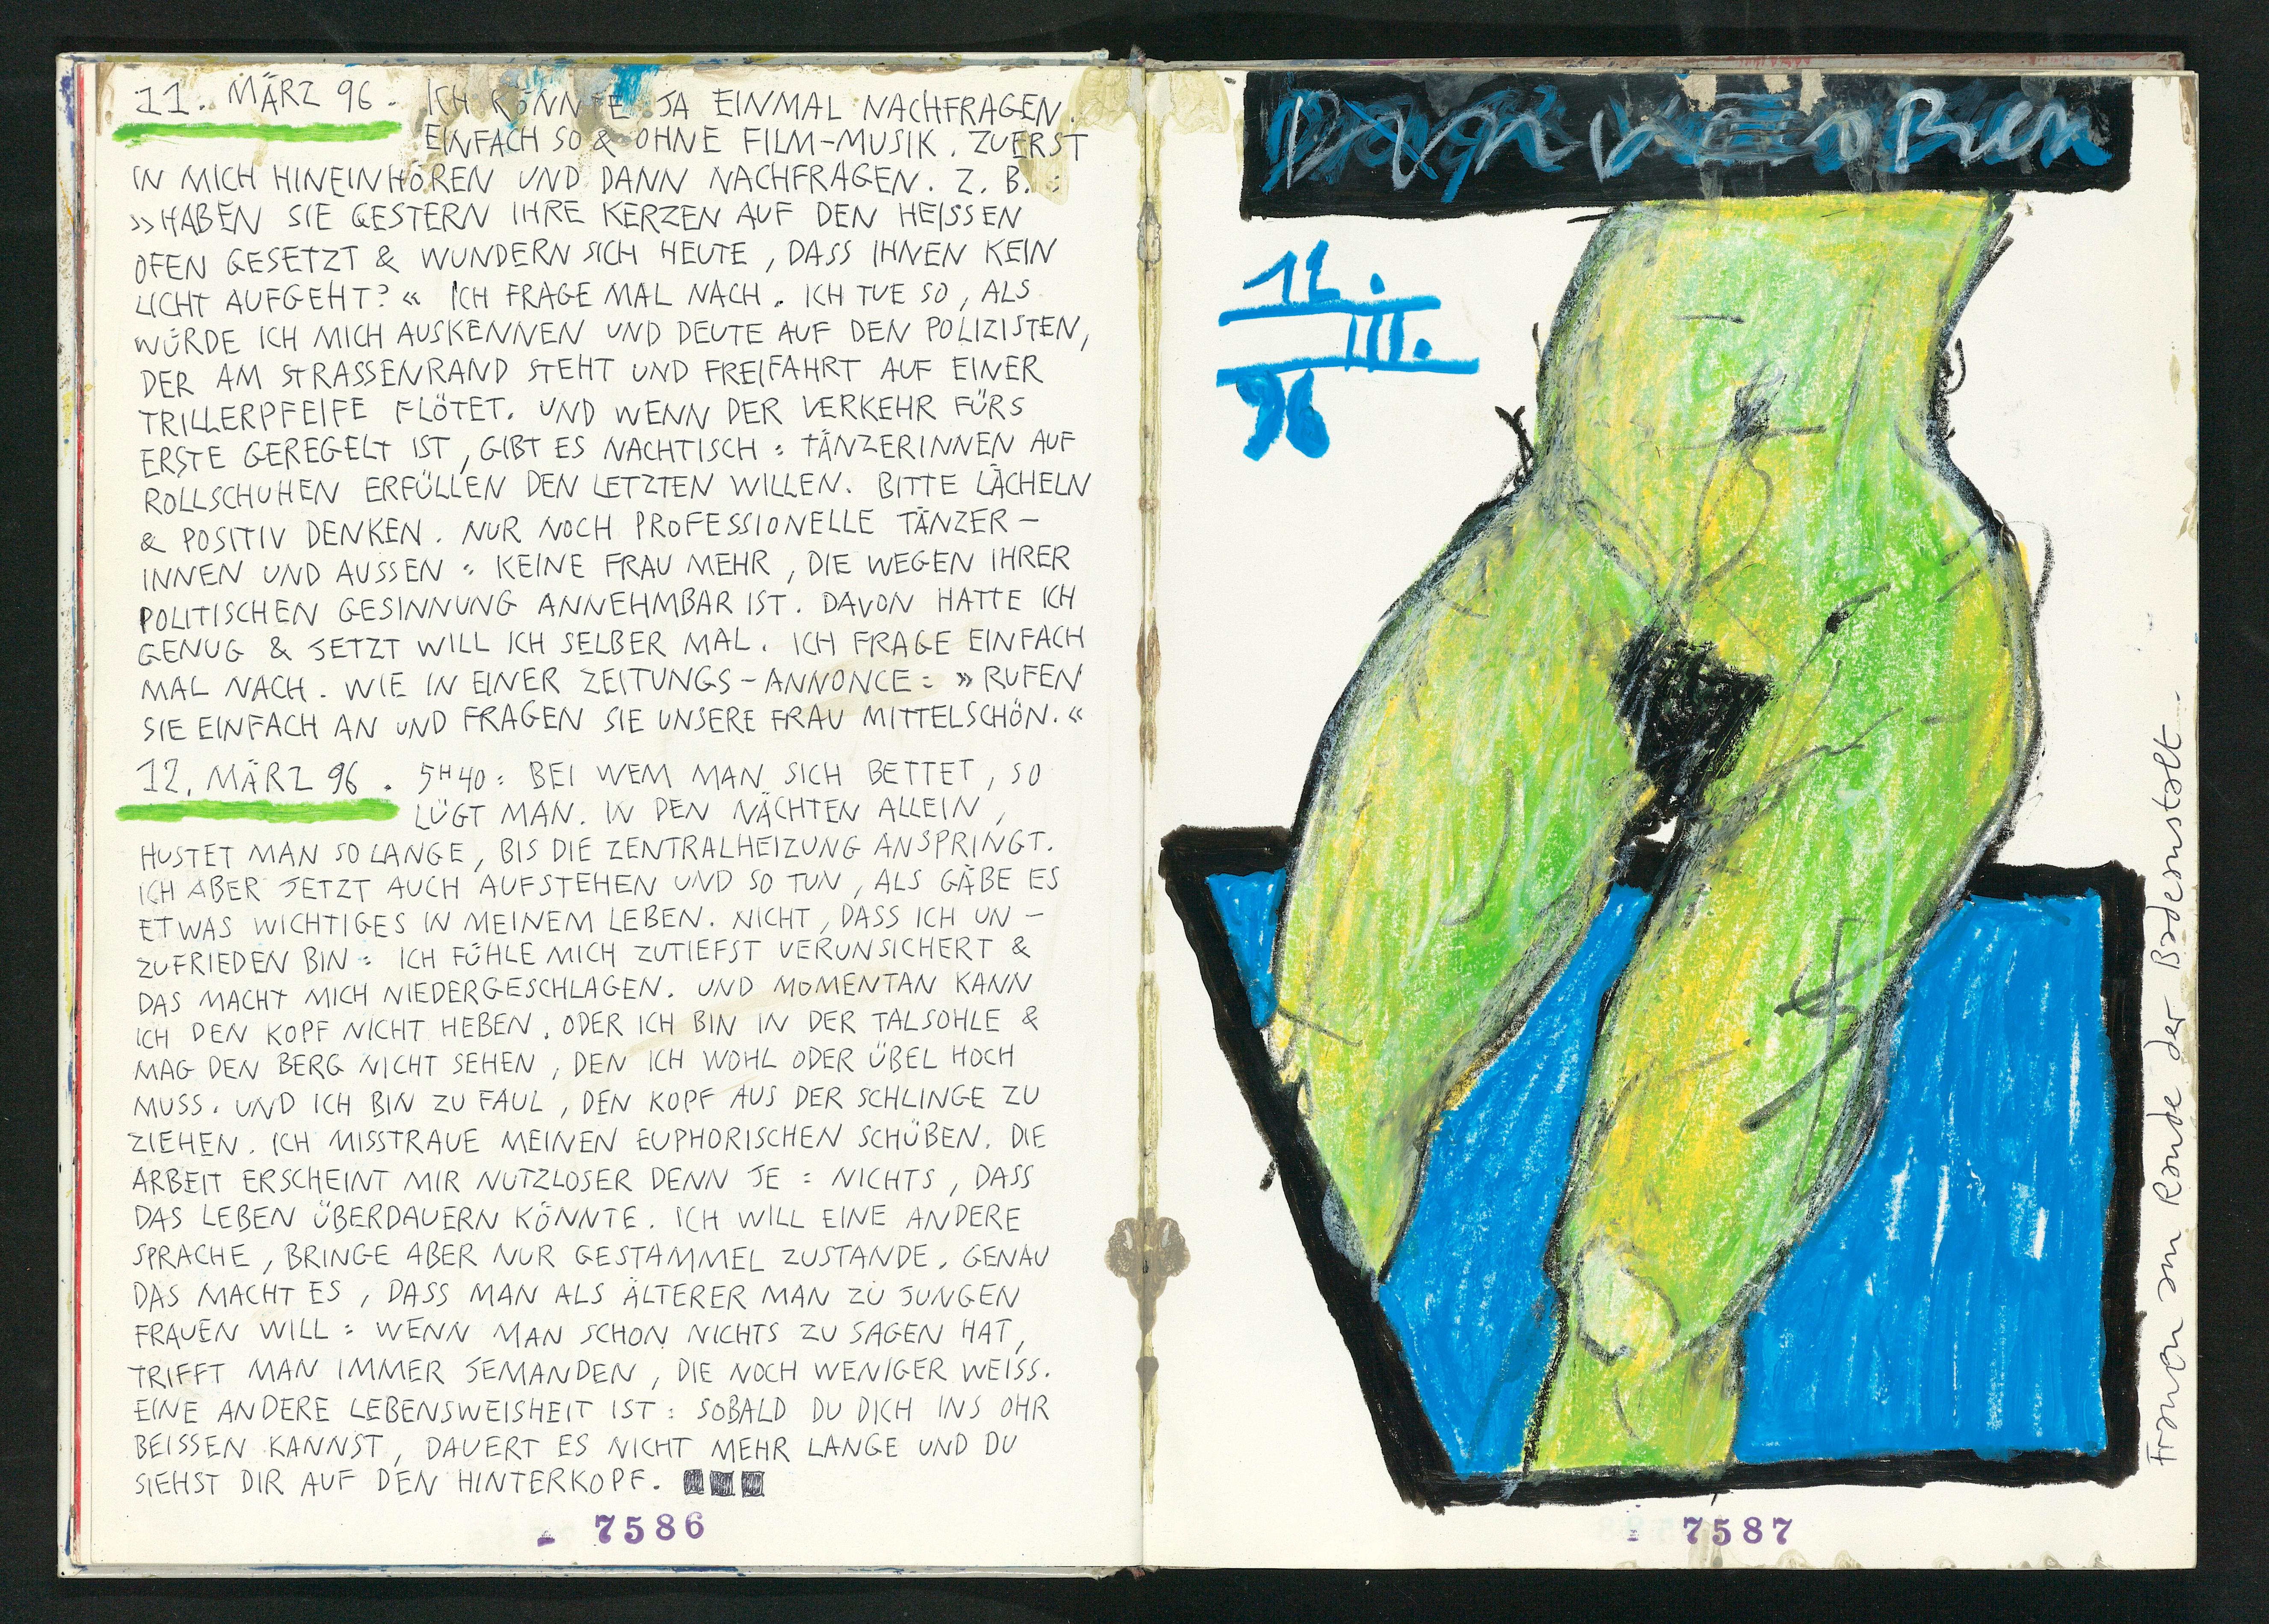 11. MÄRZ 96. ICH KÖNNTE JA EINMAL NACHFRAGEN.
EINFACH SO & OHNE FILM-MUSIK. ZUERST
IN MICH HINEINHÖREN UND DANN NACHFRAGEN. Z. B.:
»HABEN SIE GESTERN IHRE KERZEN AUF DEN HEISSEN
OFEN GESETZT & WUNDERN SICH HEUTE, DASS IHNEN KEIN
LICHT AUFGEHT?« ICH FRAGE MAL NACH. ICH TUE SO, ALS
WÜRDE ICH MICH AUSKENNEN UND DEUTE AUF DEN POLIZISTEN,
DER AM STRASSENRAND STEHT UND FREIFAHRT AUF EINER
TRILLERPFEIFE FLÖTET. UND WENN DER VERKEHR FÜRS
ERSTE GEREGELT IST, GIBT ES NACHTISCH: TÄNZERINNEN AUF
ROLLSCHUHEN ERFÜLLEN DEN LETZTEN WILLEN. BITTE LÄCHELN
& POSITIV DENKEN. NUR NOCH PROFESSIONELLE TÄNZER-
INNEN UND AUSSEN: KEINE FRAU MEHR, DIE WEGEN IHRER
POLITISCHEN GESINNUNG ANNEHMBAR IST. DAVON HATTE ICH
GENUG & JETZT WILL ICH SELBER MAL. ICH FRAGE EINFACH
MAL NACH. WIE IN EINER ZEITUNGS-ANNONCE: »RUFEN
SIE EINFACH AN UND FRAGEN SIE UNSERE FRAU MITTELSCHÖN.«
12. MÄRZ 96. 5H40: BEI WEM MAN SICH BETTET, SO
LÜGT MAN. IN DEN NÄCHTEN ALLEIN,
HUSTET MAN SO LANGE, BIS DIE ZENTRALHEIZUNG ANSPRINGT.
ICH ABER JETZT AUCH AUFSTEHEN UND SO TUN, ALS GÄBE ES
ETWAS WICHTIGES IN MEINEM LEBEN. NICHT, DASS ICH UN-
ZUFRIEDEN BIN: ICH FÜHLE MICH ZUTIEFST VERUNSICHERT &
DAS MACHT MICH NIEDERGESCHLAGEN. UND MOMENTAN KANN
ICH DEN KOPF NICHT HEBEN. ODER ICH BIN IN DER TALSOHLE &
MAG DEN BERG NICHT SEHEN, DEN ICH WOHL ODER ÜBEL HOCH
MUSS. UND ICH BIN ZU FAUL, DEN KOPF AUS DER SCHLINGE ZU
ZIEHEN. ICH MISSTRAUE MEINEN EUPHORISCHEN SCHÜBEN. DIE
ARBEIT ERSCHEINT MIR NUTZLOSER DENN JE: NICHTS, DASS
DAS LEBEN ÜBERDAUERN KÖNNTE. ICH WILL EINE ANDERE
SPRACHE, BRINGE ABER NUR GESTAMMEL ZUSTANDE. GENAU
DAS MACHT ES, DASS MAN ALS ÄLTERER MAN ZU JUNGEN
FRAUEN WILL: WENN MAN SCHON NICHTS ZU SAGEN HAT,
TRIFFT MAN IMMER JEMANDEN, DIE NOCH WENIGER WEISS.
EINE ANDERE LEBENSWEISHEIT IST: SOBALD DU DICH INS OHR
BEISSEN KANNST, DAUERT ES NICHT MEHR LANGE UND DU
SIEHST DIR AUF DEN HINTERKOPF.
7586
12.
III.
96
Frauen am Rande der Badeanstalt.
7587